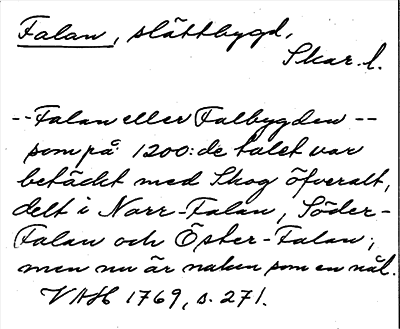 Falan, slättbygd,
Skar. l.
--Falan eller Falbygden --
som på 1200:de talet var
betäckt med Skog öfveralt,
delt i Norr-Falan, Söder-
Falan och Öster-Falan;
men nu är naken som en nål.
VAH 1769, s. 271.